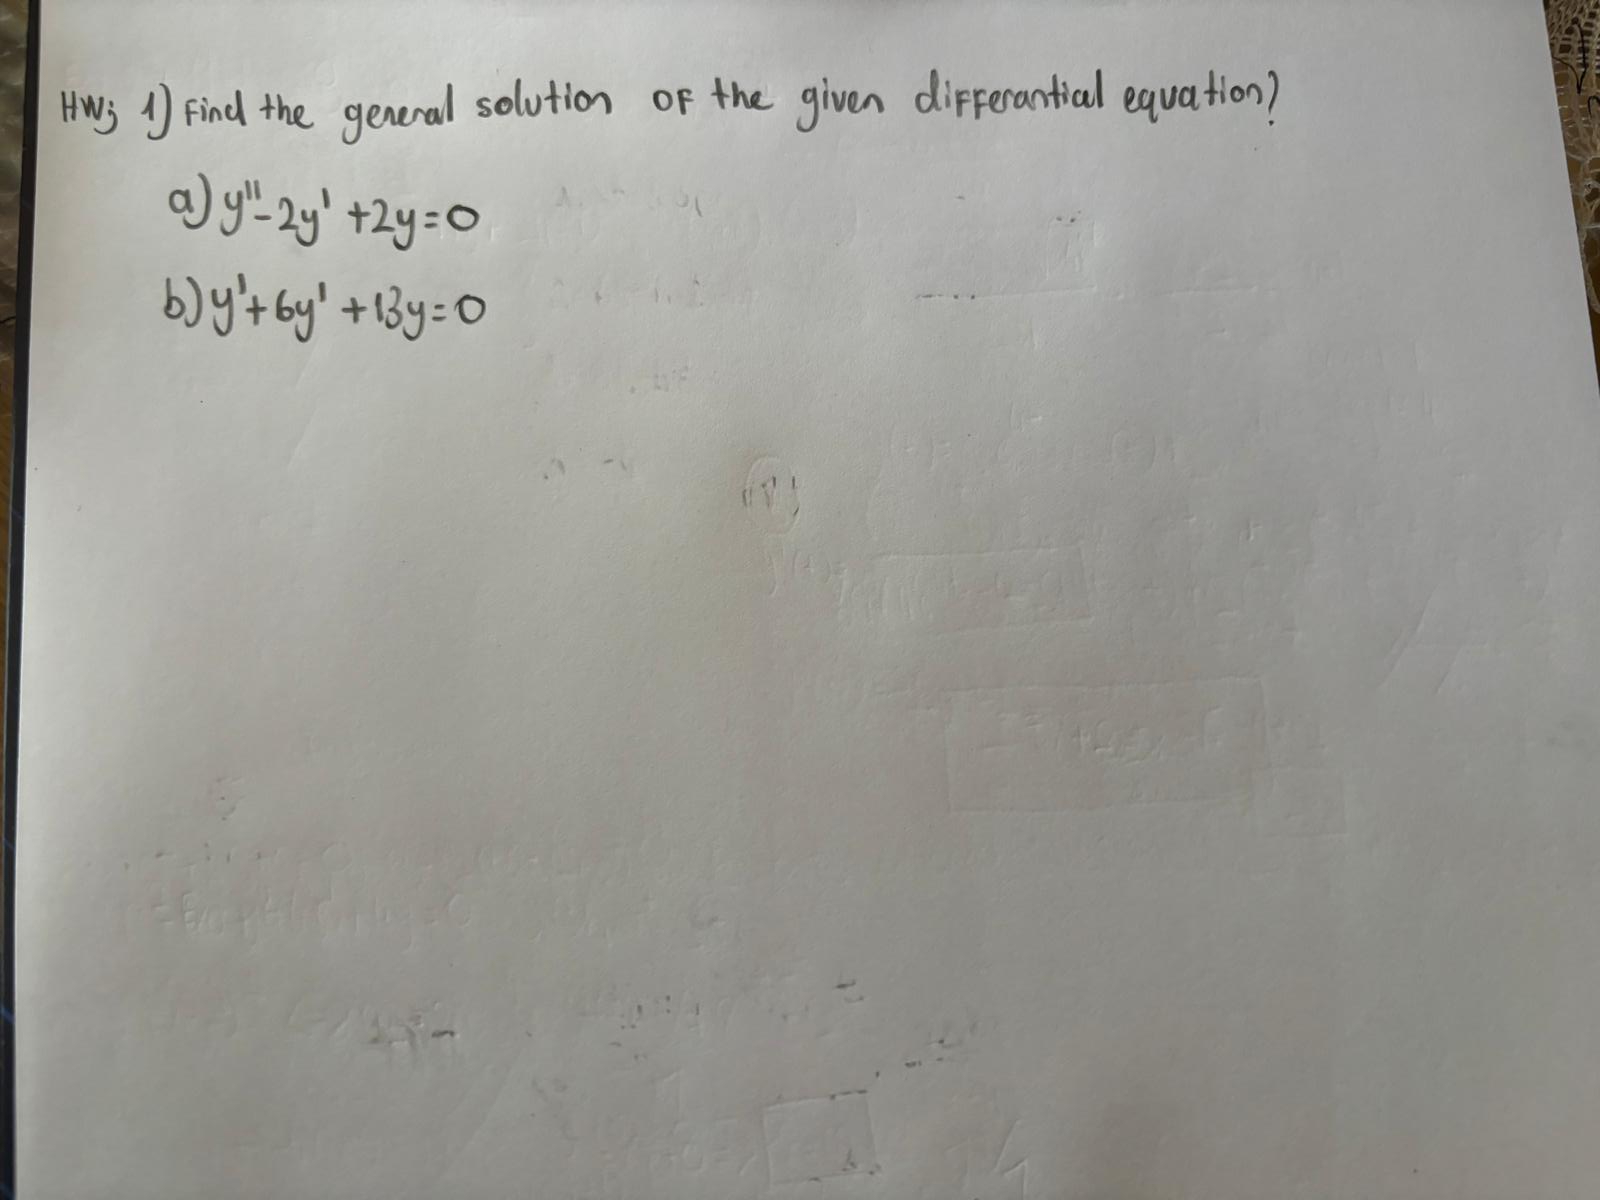 HW; 1) Find the general solution of the given differantial equation?
a) y'' - 2y' + 2y = 0
b) y' + 6y' + 13y = 0